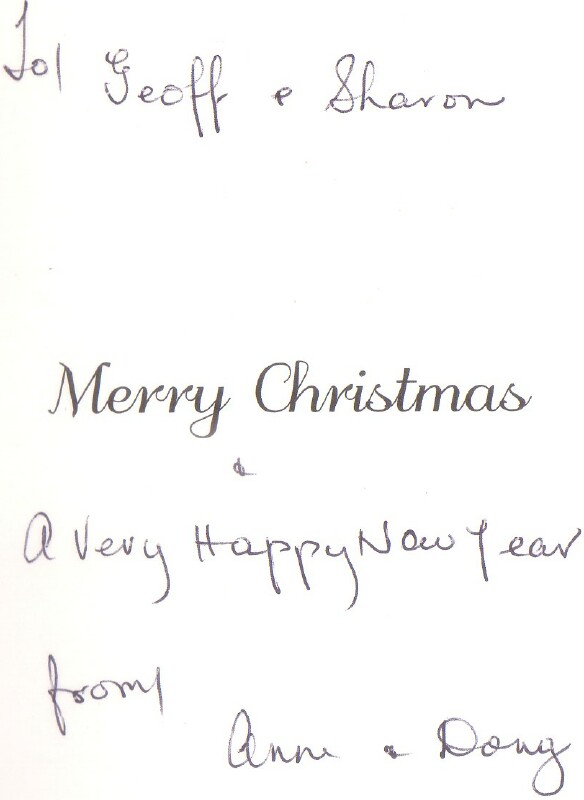 To/ Geoff & Sharon
Merry Christmas
&
A Very Happy New Year
from/
Anne & Doug